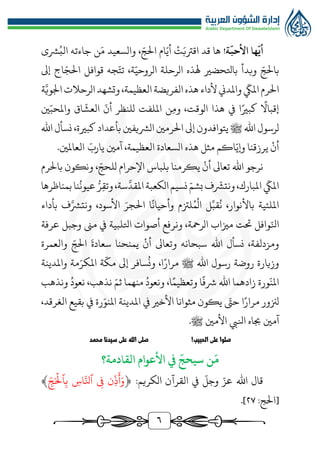 إدارة الشؤون العربية
Arabic Department Of Dawateislami
أيّها الأحبّة! ها قد اقتربَتْ أيّام الحجّ، والسعيد مَن جاءته البُشرى
بالحجّ وبدأ بالتحضير لهذه الرحلة الروحيّة، تتّجه قوافل الحُجّاج إلى
الحرم المكّي والمدني لأداء هذه الفريضة العظيمة، وتشهد الرحلات الجويّة
إقبالًا كبيرًا في هذا الوقت، ومِن الملفت للنظر أنّ العشّاق والمحبّين
لرسول الله ﷺ يتوافدون إلى الحرمين الشريفين بأعداد كبيرة، نسأل الله
أنْ يرزقنا وإيّاكم مثل هذه السعادة العظيمة، آمين ياربّ العالمين.
نرجو الله تعالى أنْ يكرمنا بلباس الإحرام للحجّ، ونكون بالحرم
المكّي المبارك، ونتشرّف بشمّ نسيم الكعبة المقدّسة، وتقرُّ عيوننا بمناظرها
المليئة بالأنوار، نُقبِّل الْمُلتزم وأحيانًا الحجرَ الأسود، ونتشرّف بأداء
النّوافل تحت ميزاب الرحمة، ونرفع أصوات التلبية في منى وجبل عرفة
ومزدلفة، نسأل الله سبحانه وتعالى أنْ يمنحنا سعادةَ الحجّ والعمرة
وزيارة روضة رسول الله ﷺ مرارًا، ونُسافر إلى مكّة المكرّمة والمدينة
المنّورة زادهما الله شرفًا وتعظيمًا، ونعودُ منهما ثمّ نذهب، نعودُ ونذهب
لنزور مرارًا حتّى يكون مثوانا الأخير في المدينة المنوّرة في بقيع الغرقد،
آمين بجاه النبي الأمين ﷺ.
صلوا على الحبيب! صلى الله على سيدنا محمد
مَن سيحجّ في الأعوام القادمة؟
قال الله عزّ وجلّ في القرآن الكريم: ﴿وَأَذِّن فِي ٱلنَّاسِ بِٱلْحَجِّ﴾
[الحج: ٢٧].
٦